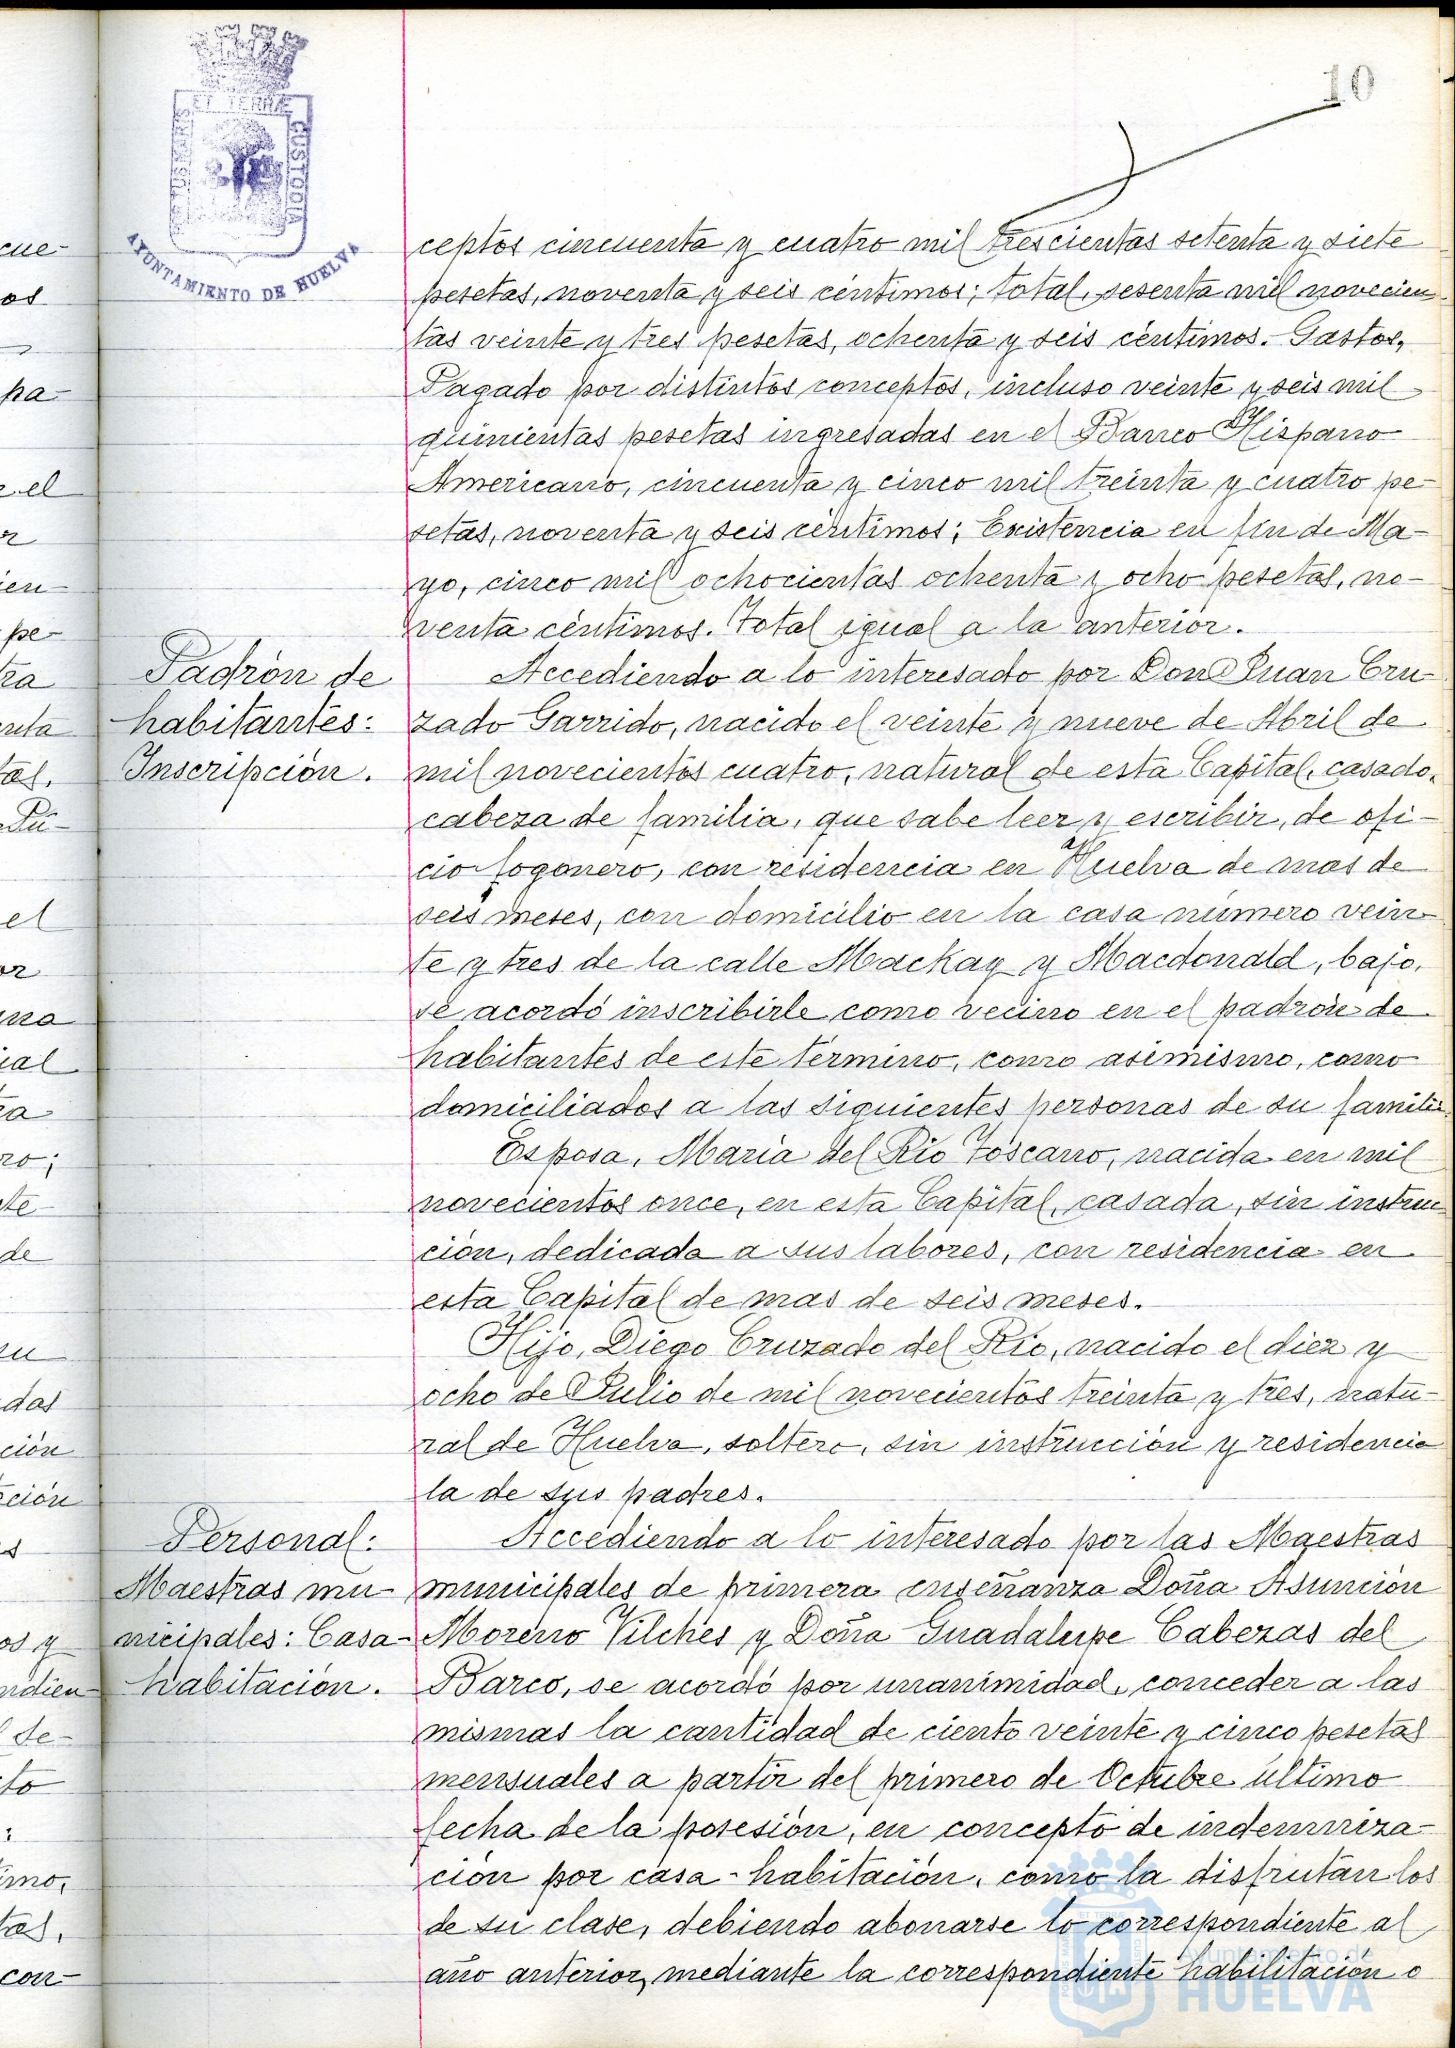 10
ET TERRÆ
CUSTODIA
AYUNTAMIENTO DE HUELVA
ceptos cincuenta y cuatro mil trescientas setenta y siete
pesetas, noventa y seis céntimos; total, sesenta mil novecien
tas veinte y tres pesetas, ochenta y seis céntimos. Gastos,
Pagado por distintos conceptos, incluso veinte y seis mil
quinientas pesetas ingresadas en el Banco Hispano
Americano, cincuenta y cinco mil treinta y cuatro pe-
setas, noventa y seis céntimos; Existencia en fin de Ma-
yo, cinco mil ochocientas ochenta y ocho pesetas, no-
venta céntimos. Total igual a la anterior.
Padrón de
habitantes:
Inscripción.
Accediendo a lo interesado por Don Juan Cru-
zado Garrido, nacido el veinte y nueve de Abril de
mil novecientos cuatro, natural de esta Capital, casado,
cabeza de familia, que sabe leer y escribir, de ofi-
cio fogonero, con residencia en Huelva de mas de
seis meses, con domicilio en la casa número vein-
te y tres de la calle Mackay y Macdonald, bajo,
se acordó inscribirle como vecino en el padrón de
habitantes de este término, como asimismo, como
domiciliados a las siguientes personas de su familia
Esposa, María del Río Toscano, nacida en mil
novecientos once, en esta Capital, casada, sin instruc
ción, dedicada a sus labores, con residencia en
esta Capital de mas de seis meses.
Hijo, Diego Cruzado del Río, nacido el diez y
ocho de Julio de mil novecientos treinta y tres, natu-
ral de Huelva, soltero, sin instrucción y residencia
la de sus padres.
Personal:
Maestras mu-
nicipales: Casa-
habitación.
Accediendo a lo interesado por las Maestras
municipales de primera enseñanza Doña Asunción
Moreno Vilches y Doña Guadalupe Cabezas del
Barco, se acordó por unanimidad, conceder a las
mismas la cantidad de ciento veinte y cinco pesetas
mensuales a partir del primero de Octubre último
fecha de la posesión, en concepto de indemniza-
ción por casa-habitación, como la disfrutan los
de su clase, debiendo abonarse lo correspondiente al
año anterior, mediante la correspondiente habilitación o
Ayuntamiento de
HUELVA